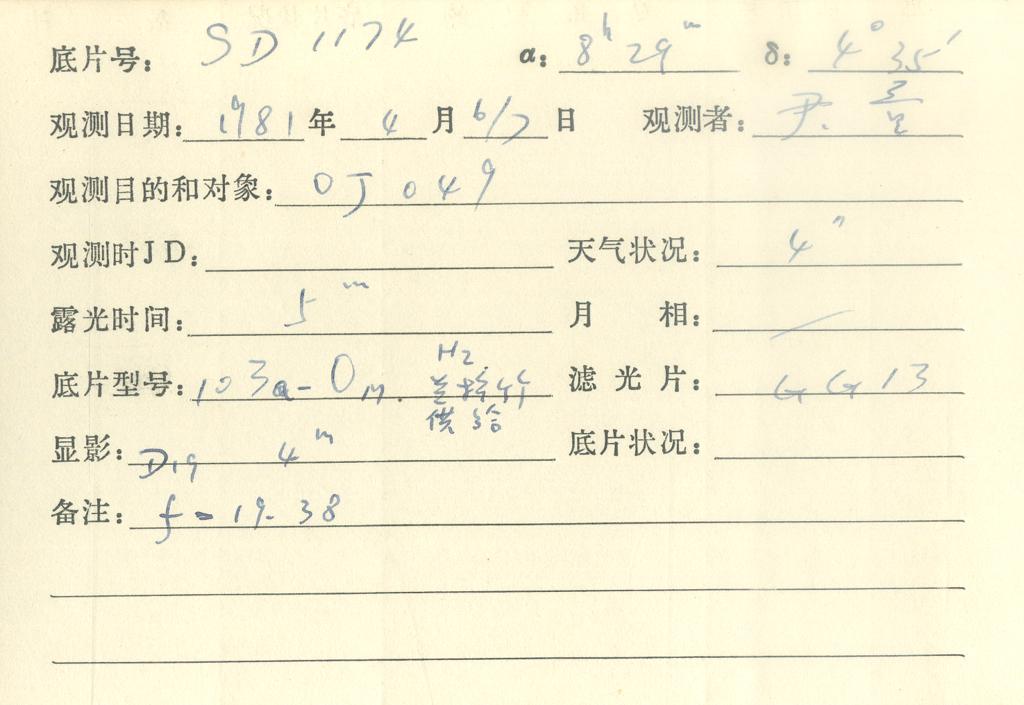 底片号: SD 1174 α: 8h 29m δ: 4° 35′
观测日期: 1981 年 4 月 6/7 日 观测者: 尹.
观测目的和对象: OJ 049
观测时JD: 天气状况: 4"
露光时间: 5m 月 相: /
H2
底片型号: 103a-O 滤光片: GG13
供给
显影: D19 4m 底片状况:
备注: f = 19.38